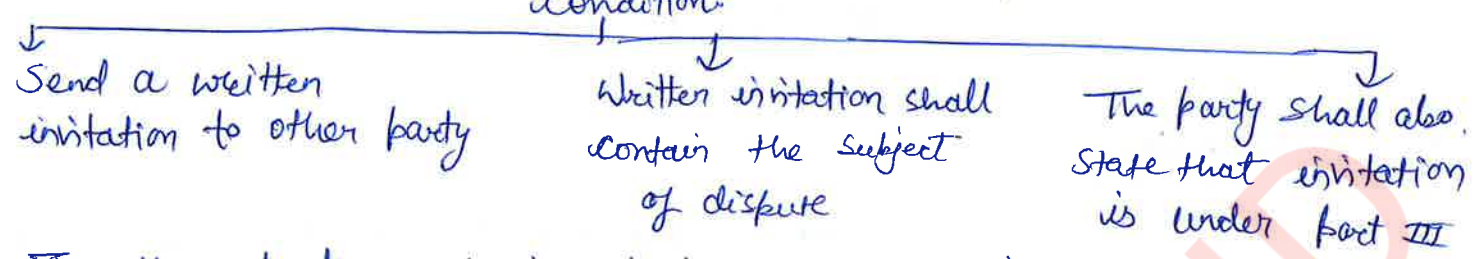 Condition.
Send a written
invitation to other party
Written invitation shall
contain the subject
of dispute
The party shall also.
state that invitation
is under part III